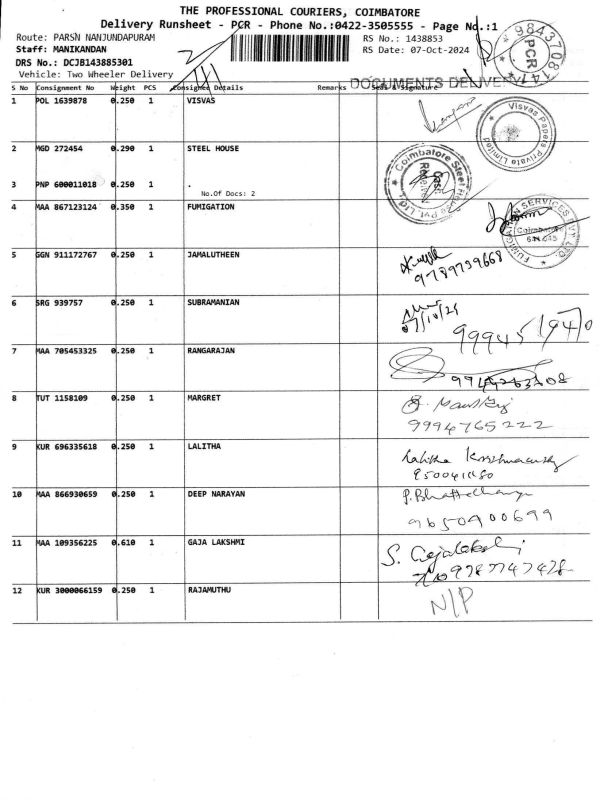 THE PROFESSIONAL COURIERS, COIMBATORE
Delivery Runsheet - PCR - Phone No.:0422-3505555 - Page No.:1
Route: PARSN NANJUNDAPURAM
RS No.: 1438853
Staff: MANIKANDAN
RS Date: 07-Oct-2024
DRS No.: DCJB143885301
Vehicle: Two Wheeler Delivery
9843708741
PCR
DOCUMENTS DELIVERY
S No Consignment No Weight PCS Consignee Details Remarks Seal & Signature
1 POL 1639878 0.250 1 VISVAS
Visvas Papers Private Limited
2 MGD 272454 0.290 1 STEEL HOUSE
Coimbatore Steel House Pvt Ltd
3 PNP 600011018 0.250 1 .
No.Of Docs: 2
4 MAA 867123124 0.350 1 FUMIGATION
FUMIGATION SERVICES PVT. LTD.
Coimbatore
641 045
5 GGN 911172767 0.250 1 JAMALUTHEEN
9789739668
6 SRG 939757 0.250 1 SUBRAMANIAN
07/10/24
7 MAA 705453325 0.250 1 RANGARAJAN
8 TUT 1158109 0.250 1 MARGRET
9994765222
9 KUR 696335618 0.250 1 LALITHA
Lalitha
10 MAA 866930659 0.250 1 DEEP NARAYAN
P. Bhattacharya
9650900699
11 MAA 109356225 0.610 1 GAJA LAKSHMI
S. Gajalakshmi
9787747428
12 KUR 3000066159 0.250 1 RAJAMUTHU
N/P